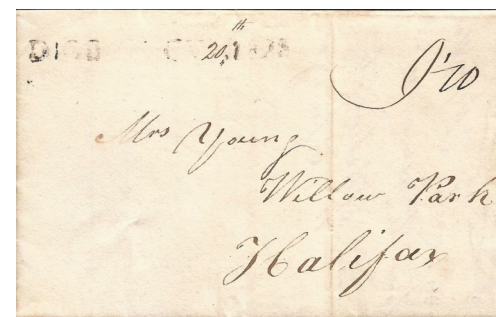 20th
9'10
Mrs Young
Willow Park
Halifax